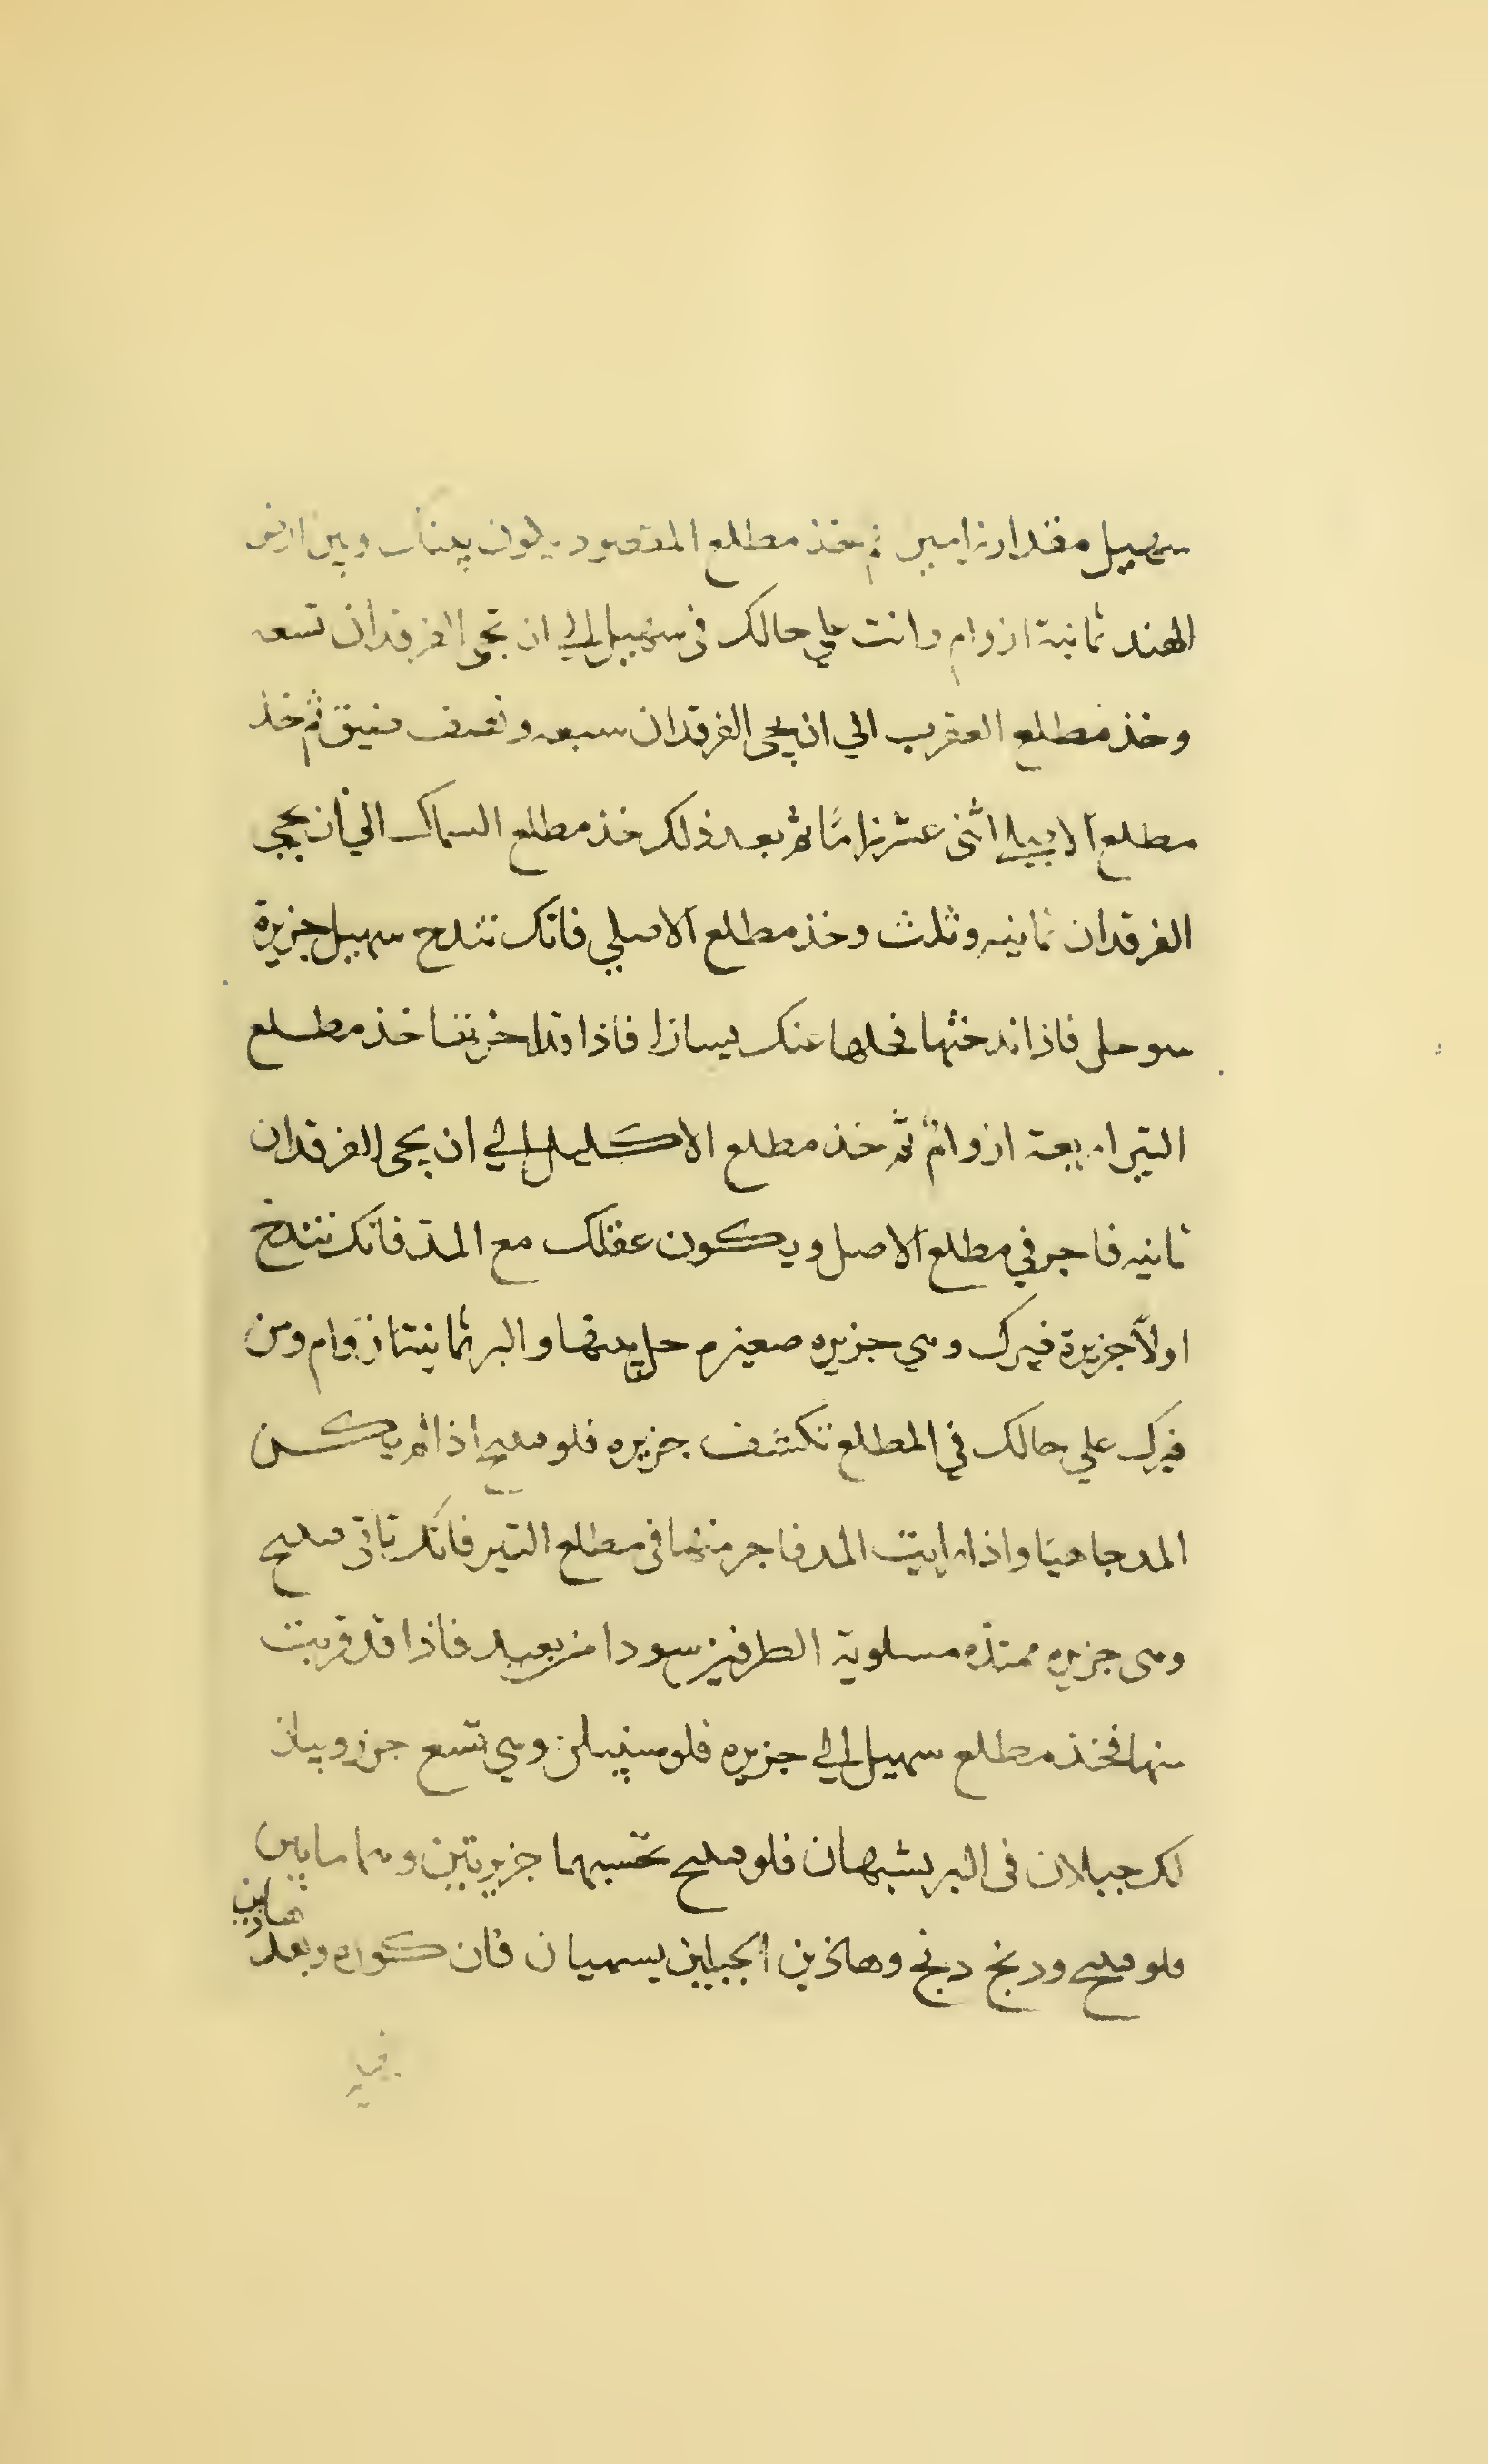 سهيل مقدار زامين ثم خذ مطلع المقصود يكون بينك وبين ارض
الهند ثمانية ازوام وانت علي حالك في سهيل الي ان تجي الفرقدان تسعه
وخذ مطلع العقرب الي ان يجي الفرقدان سبعه ونصف ضيق ثم خذ
مطلع الاصلي اثني عشر زامًا ثم بعد ذلك خذ مطلع السماك الي ان يجي
الفرقدان ثمانيه وثلث وخذ مطلع الاصلي فانك تندخ سهيل جزيرة
فاذا ندختها فخلها عنك يسارا فاذا خذ مطلع
التير اربعة ازوام ثم خذ مطلع الاكليل الي ان يجي الفرقدان
ثمانيه فاجر في مطلع الاصل ويكون عقلك مع المد فانك تندخ
اولاً جزيرة فيرك وهي جزيره صغيره بينها والبر ثمانية ازوام ومن
فيرك علي حالك في المطلع تكشف جزيره فلو صلح اذا لم يكن
المد جاهيًا واذا رايت المد فاجر منها في مطلع التير فانك تاتي صلح
وهي جزيره ممتده مسلوبة الطرفين سودا من بعيد فاذا قد قربت
منها فخذ مطلع سهيل الي جزيره فلو سنبيلن وهي تسع جزر ويبان
لك جبلان في البر يشبهان فلو صلح تحسبهما جزيرتين وهما مابين
فلو صلح ودنج دنج وهاذين الجبلين يسميان فان كوره وبعد
هاذين